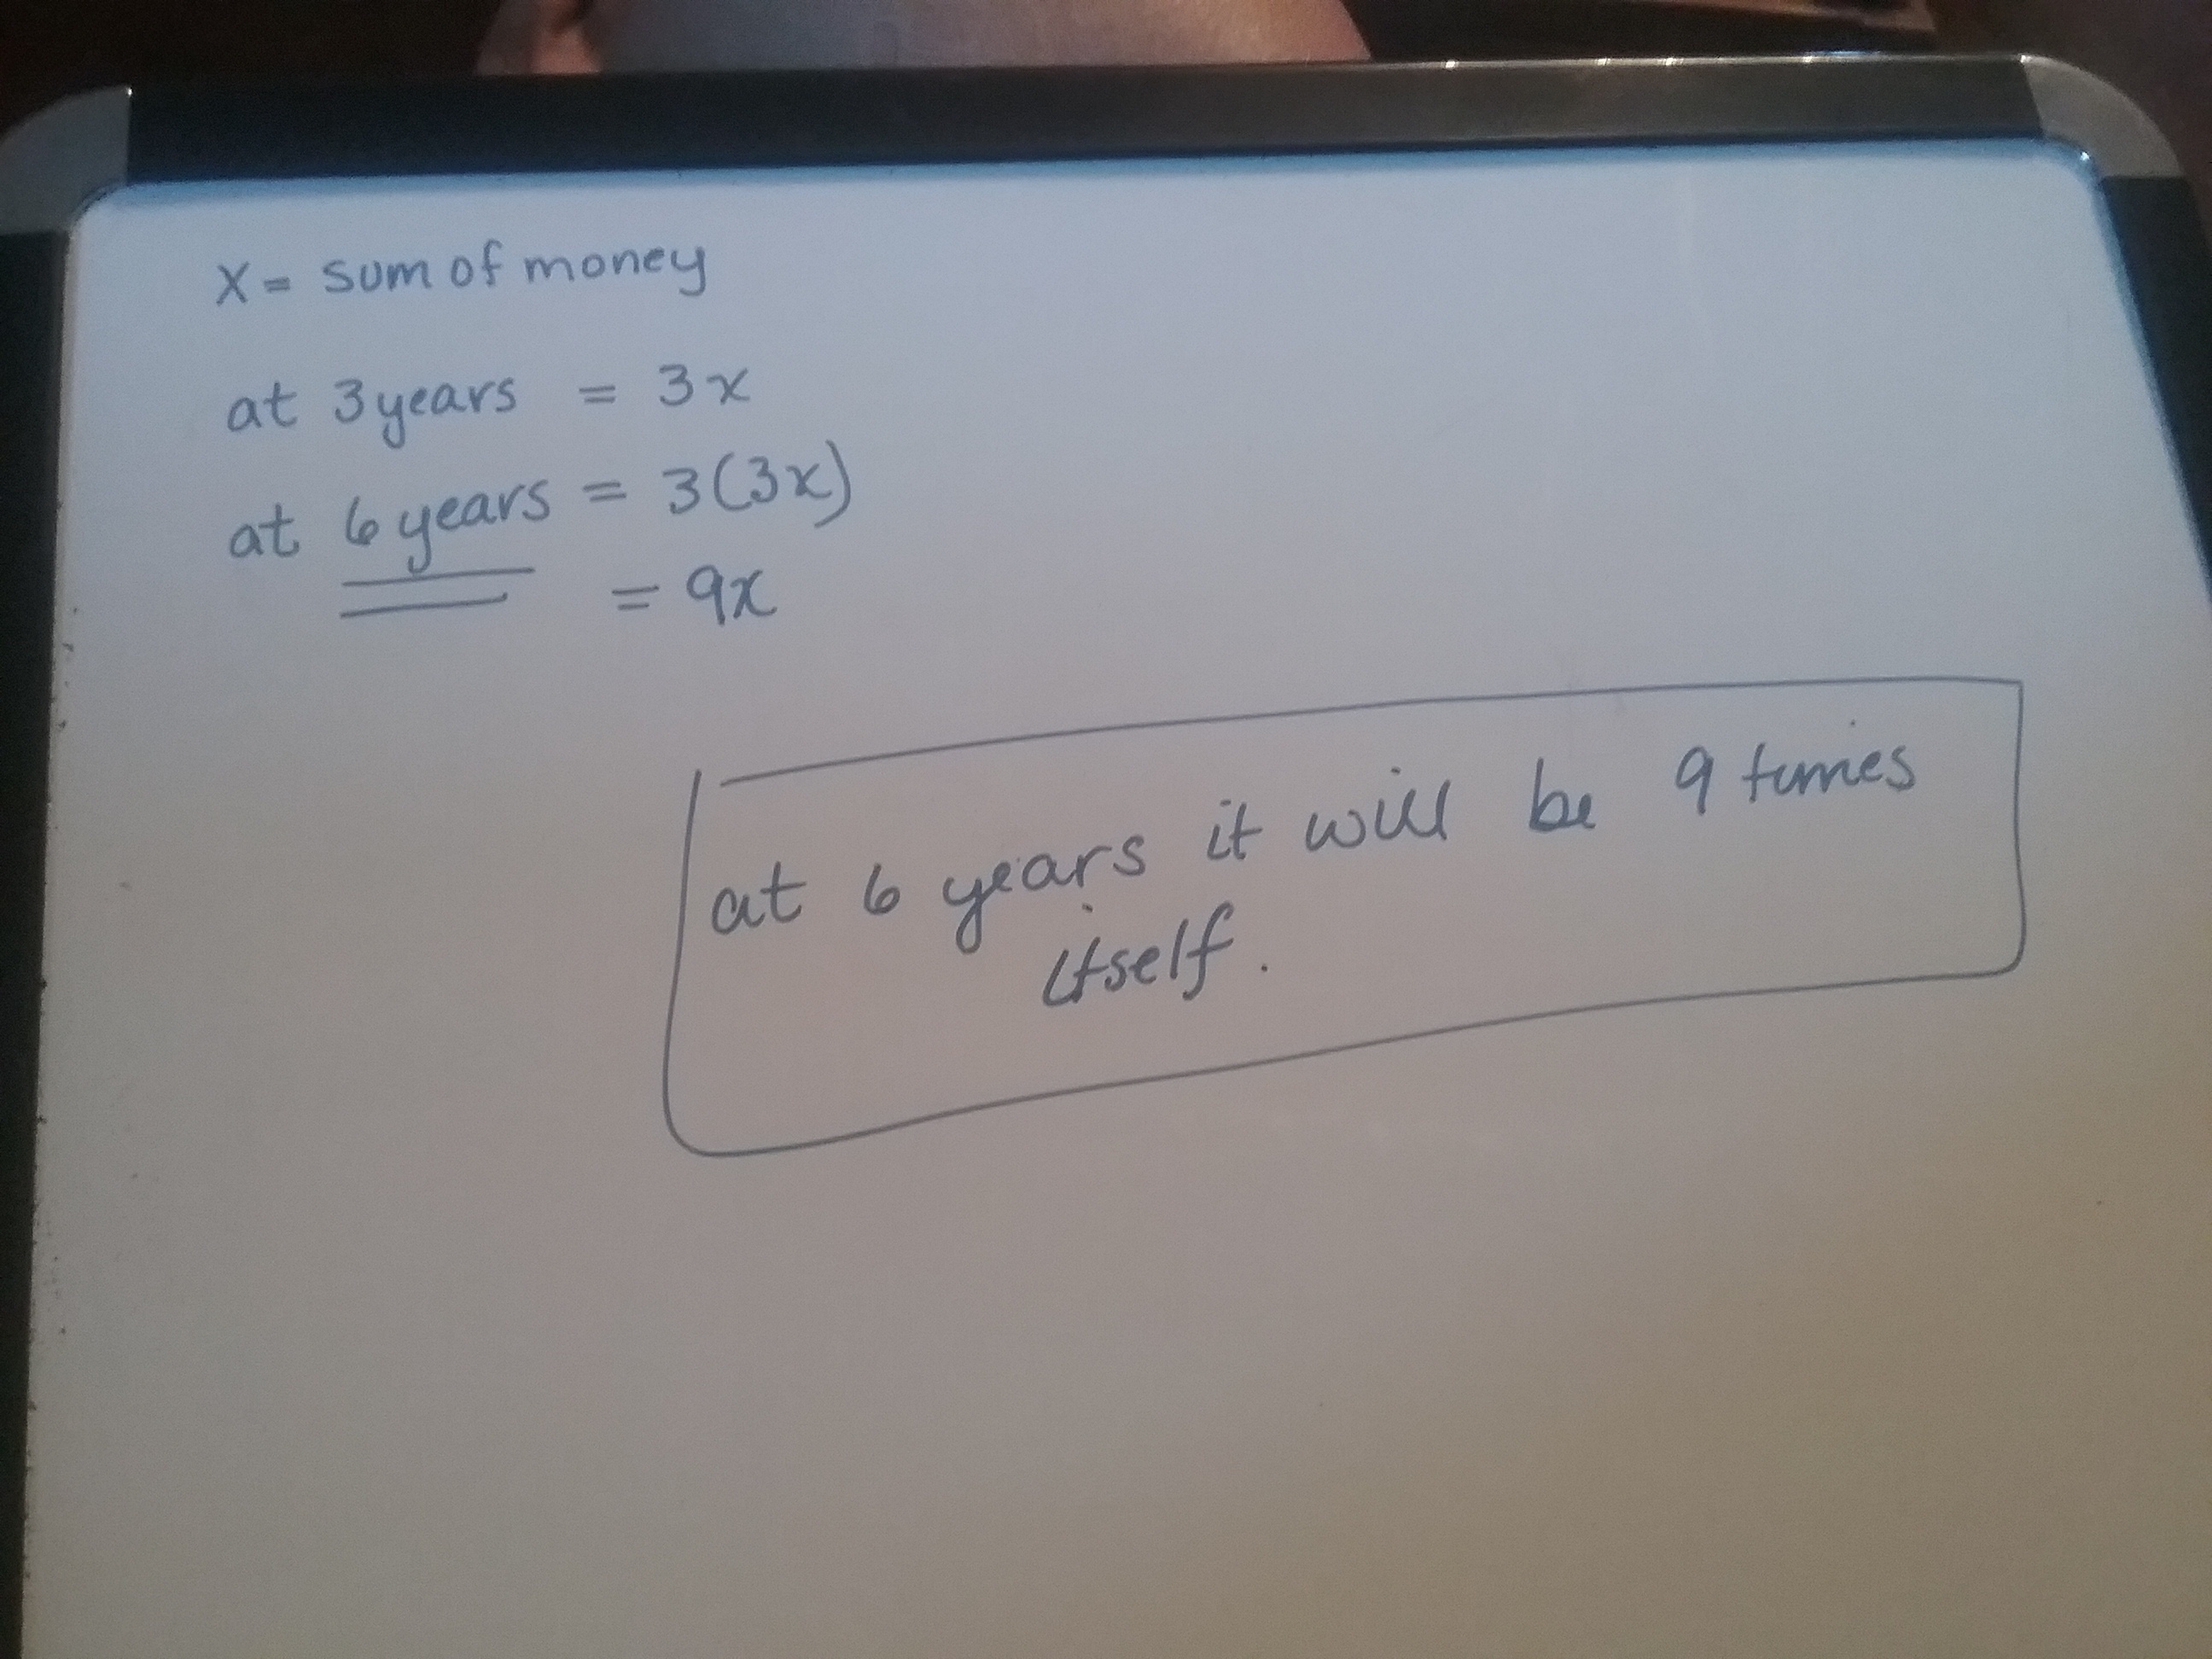 X = sum of money
at 3 years = 3x
at 6 years = 3(3x)
= 9x
at 6 years it will be 9 times
itself.